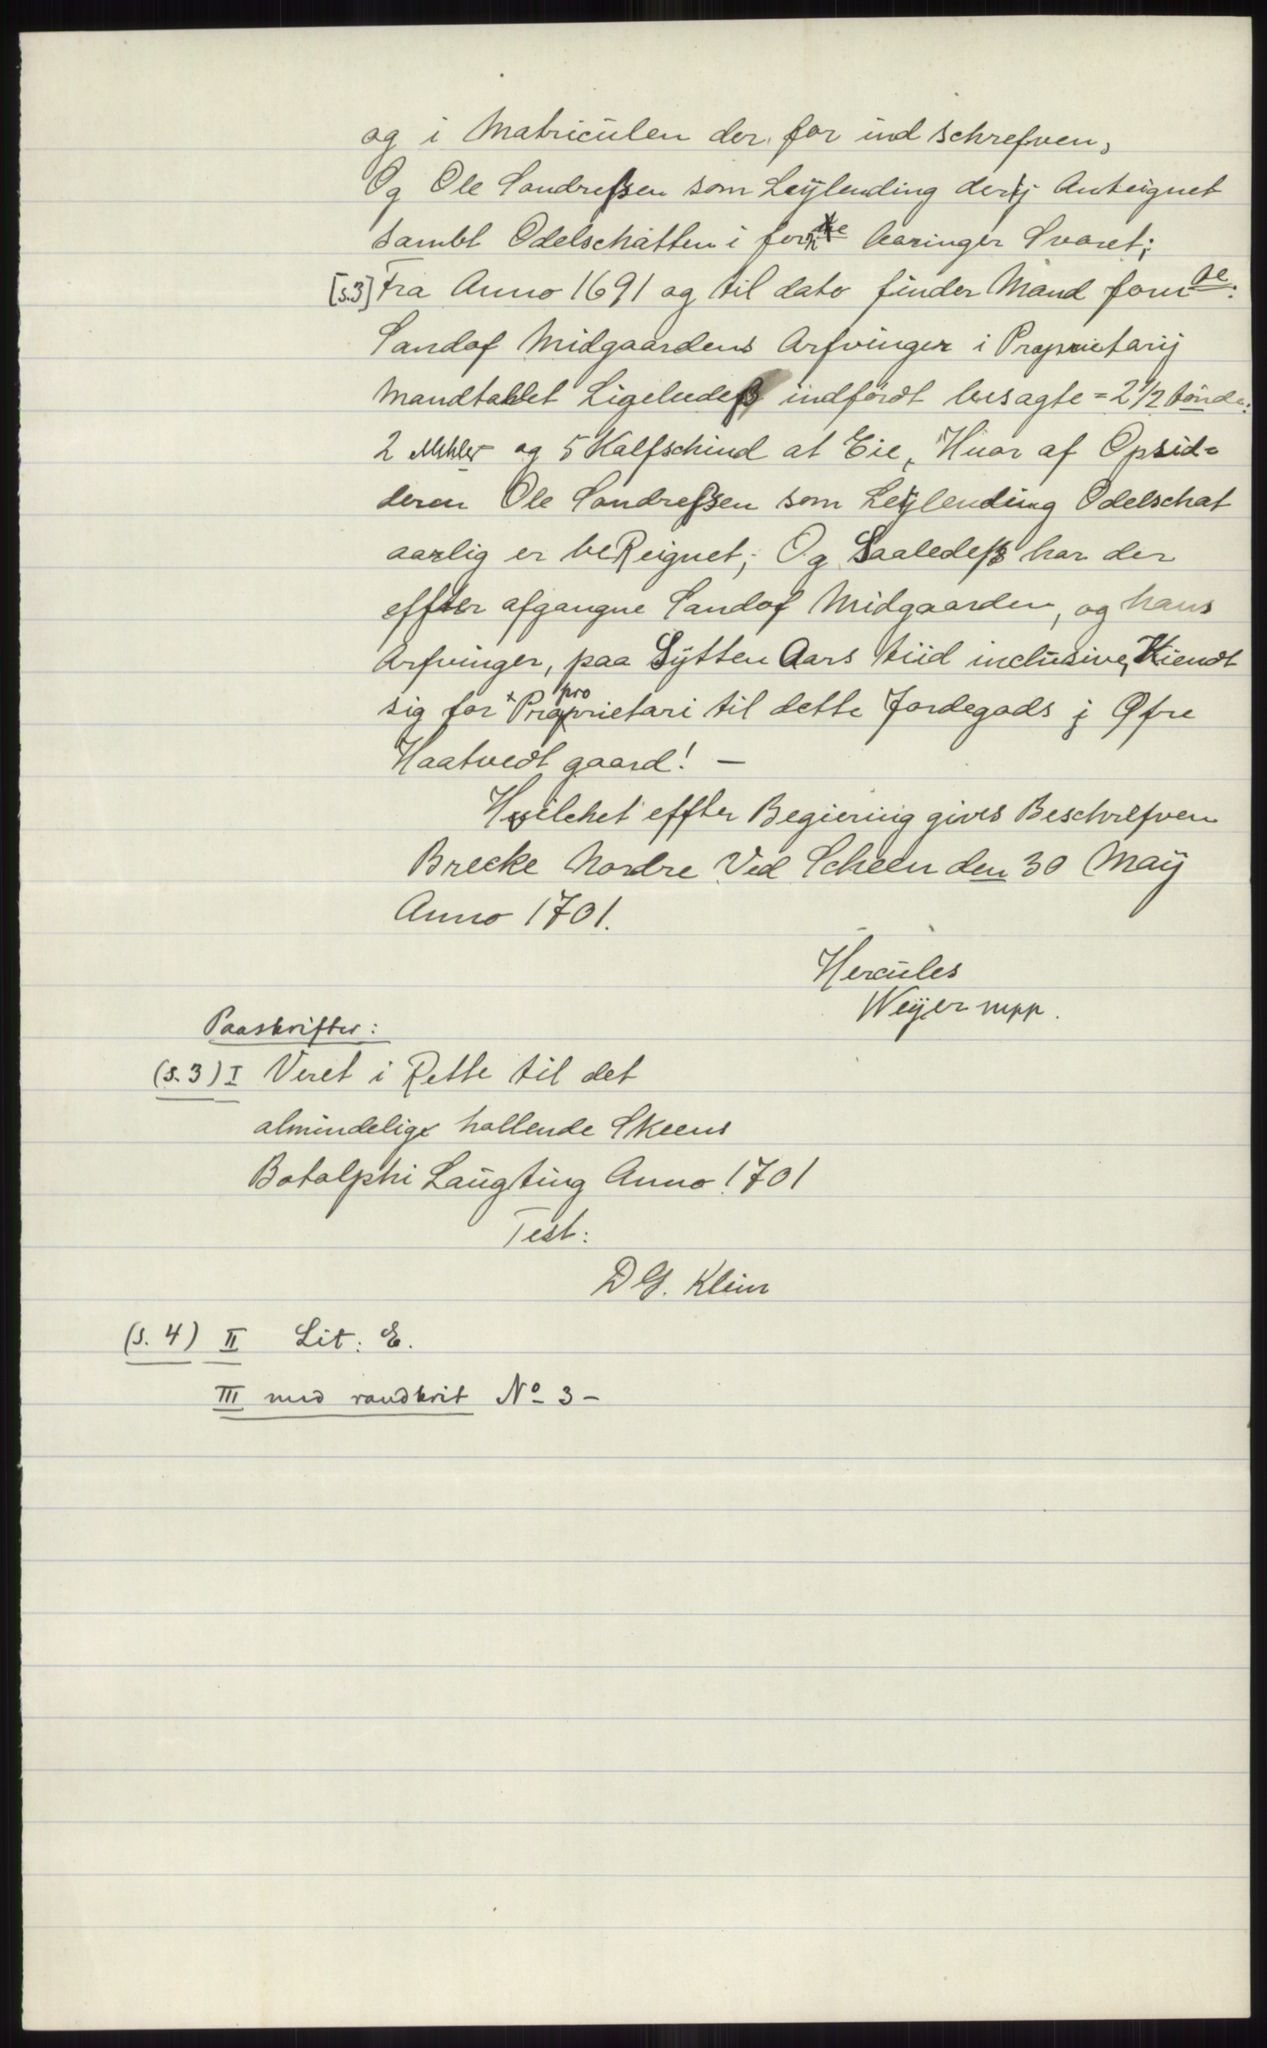 og i Matriculen der for ind schrefven,
Og Ole Sondreßen som Leÿlending derj Anteignet
sambt Odelschatten i forne Aaringer Svaret;
[s.3] Fra Anno 1691 og til dato finder Mand formne:
Sandof Midgaardens Arfvinger i Proprietarij
Mandtallet Ligeledeß indførdt besagte = 2 1/2 tønde:
2 Mehler og 5 Kalfschind at Eie, Huor af Opsid=
deren Ole Sondreßen som Leÿlending Odelschat
aarlig er beReignet; Og Saaledeß har der
effter afgangne Sandof Midgaarden, og hans
Arfvinger, paa Sÿtten Aars tiid inclusive, Kiendt
sig for Proprietari til dette Jordegods j Øfre
pro
Haatvedt gaard! —
Huilchet effter Begiering gives Beschrefven
Brecke Nordre Ved Scheen den 30 Maÿ
Anno 1701.
Hercules
Weÿer mpp.
Paaskrifter:
(s.3) I Veret i Rette til det
almindelige hallende Skeens
Botolphi Laugting Anno 1701
Test:
D G. Klim
(s. 4) II Lit: E.
III med raudkrit No 3 –